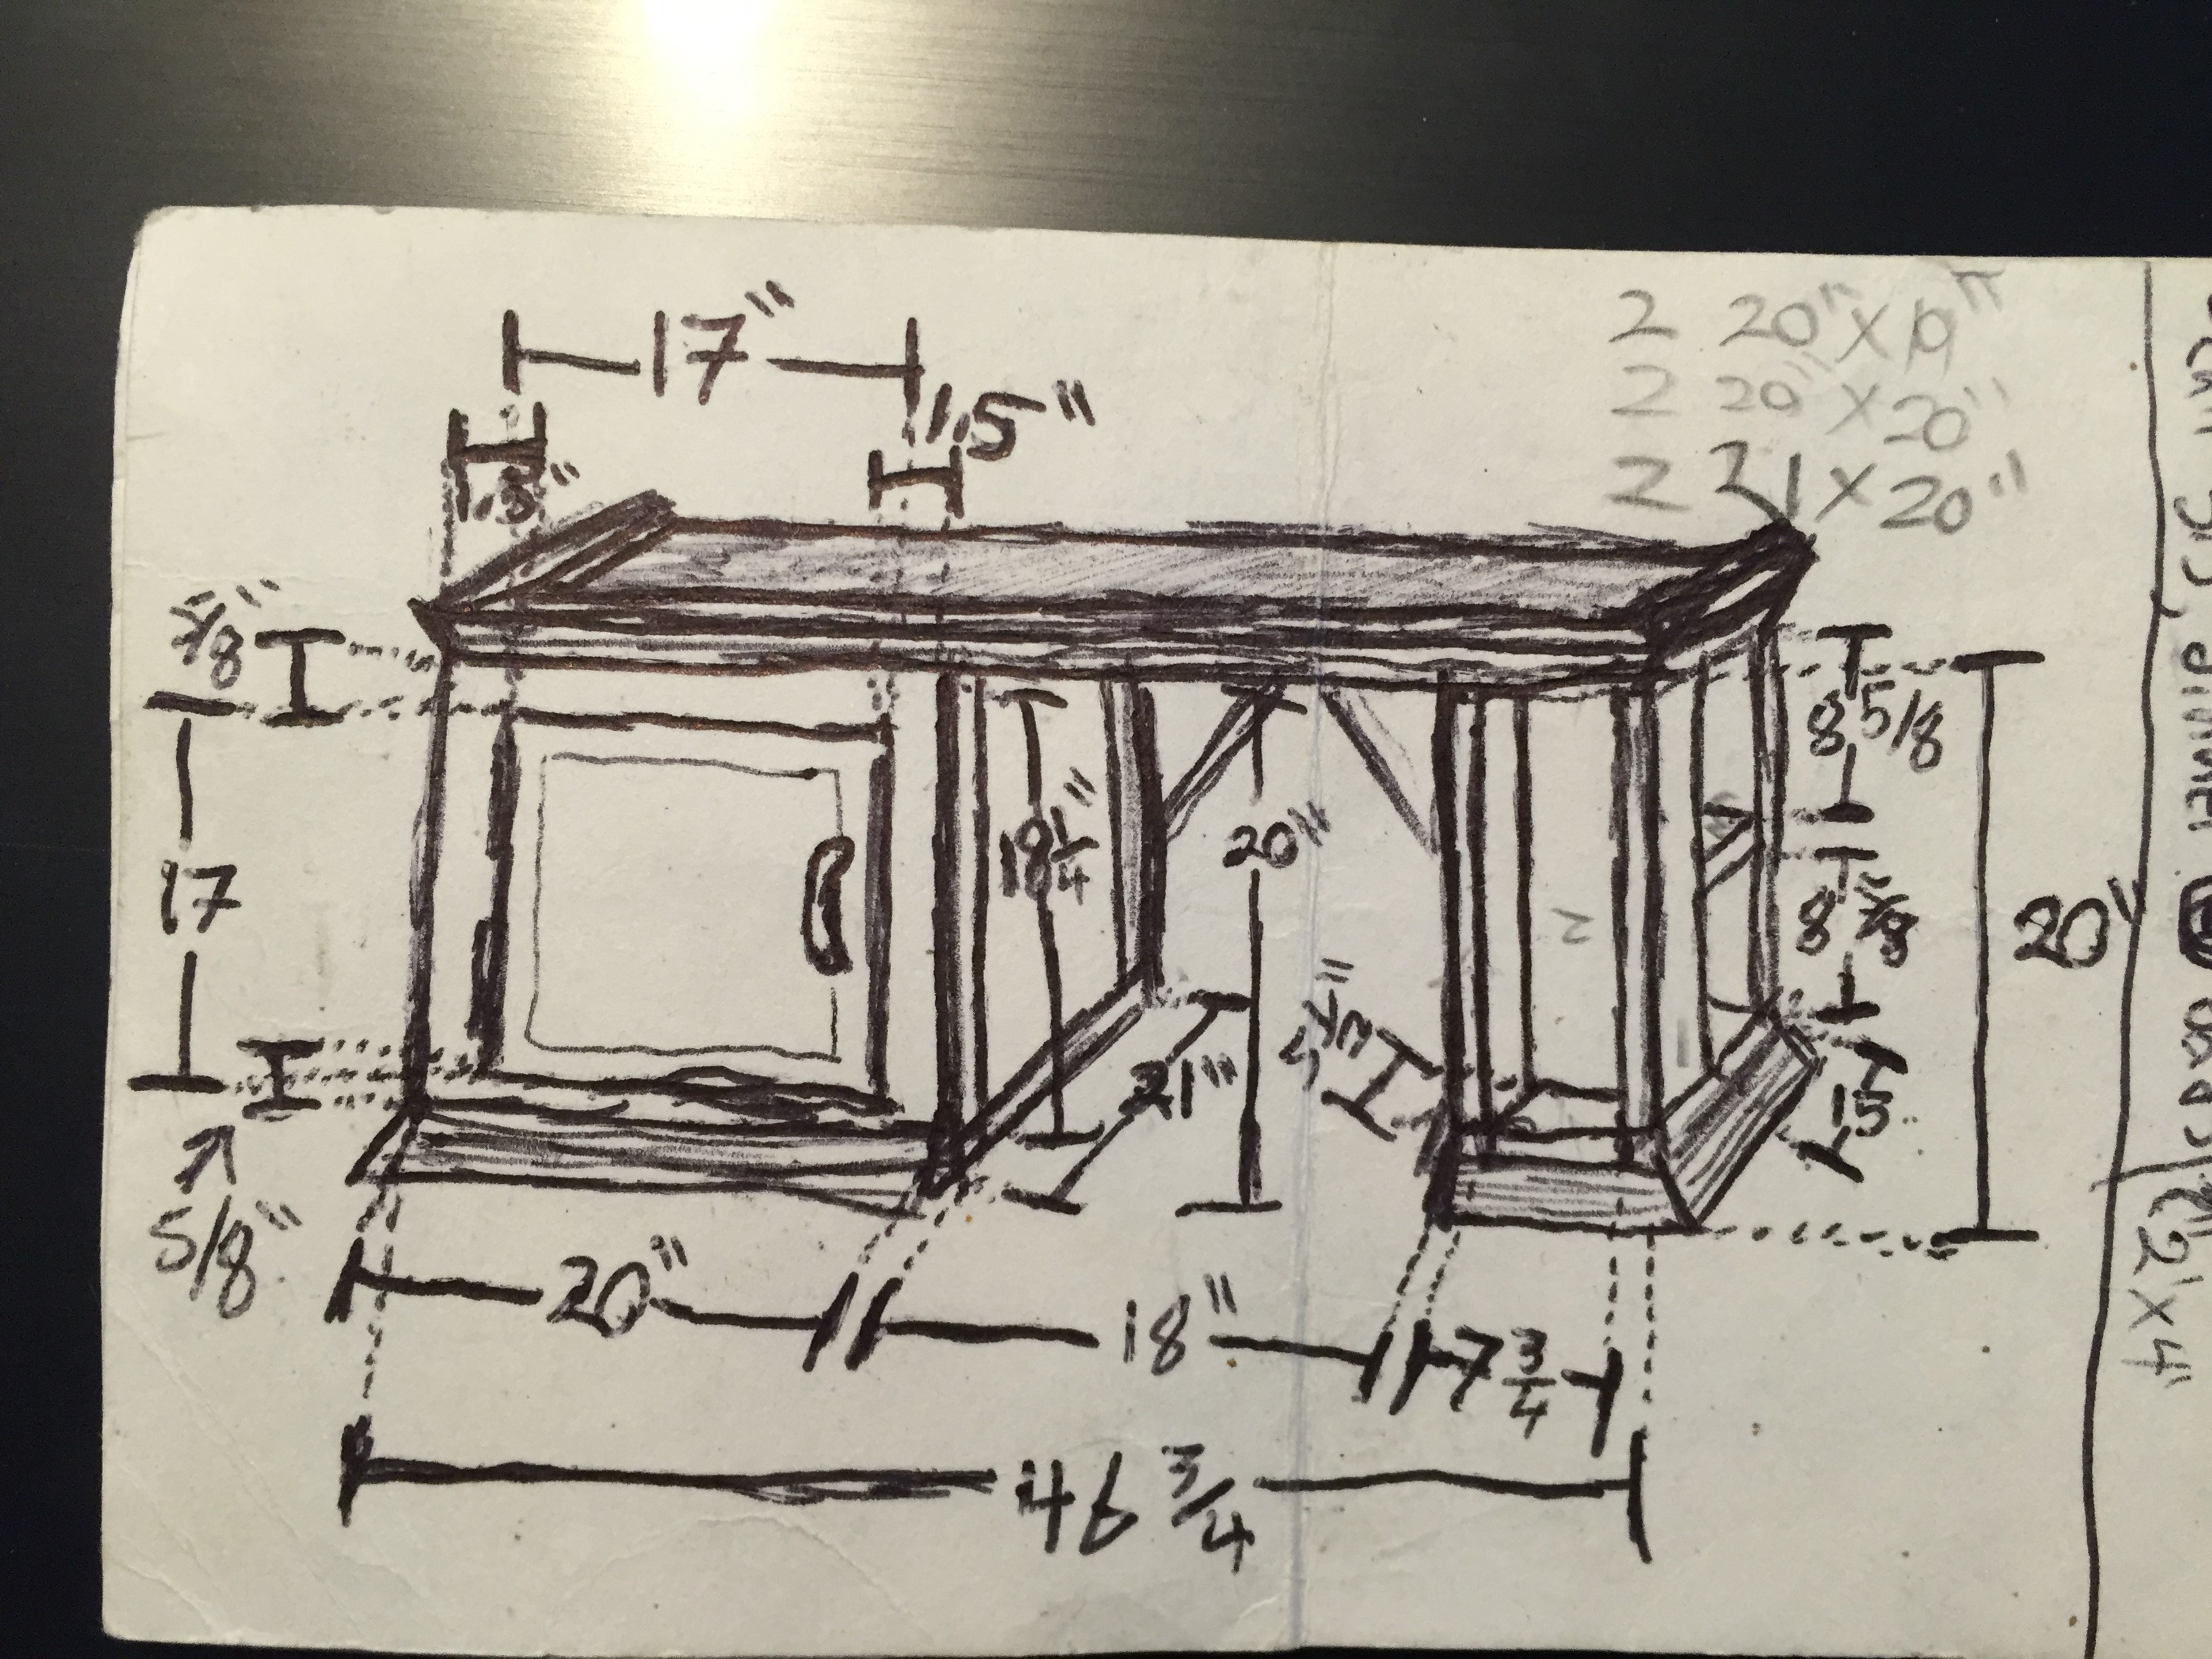 17"
1.5"
1.5"
2 20" X 19"
2 20" X 20"
2 21 X 20"
5/8"
17
5/8"
18 1/4"
20"
21"
5 1/2"
8 5/8
8 5/8
15
20"
20"
18"
7 3/4
46 3/4
2 X 4"